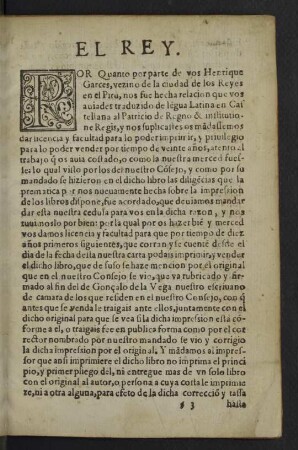 EL REY.
POR Quanto por parte de vos Henrique
Garces, vezino de la ciudad de los Reyes
en el Piru, nos fue hecha relacion que vos
auiades traduzido de lẽgua Latina en Cas
tellana al Patricio de Regno & institutio-
ne Regis, y nos suplicastes os mãdassemos
dar licencia y facultad para lo poder imprimir, y priuilegio
para lo poder vender por tiempo de veinte años, atento al
trabajo q̃ os auia costado, o como la nuestra merced fues-
se: lo qual visto por los del nuestro Cõsejo, y como por su
mandado se hizieron en el dicho libro las diligẽcias que la
prematica por nos nueuamente hecha sobre la impression
de los libros dispone, fue acordado, que deuiamos mandar
dar esta nuestra cedula para vos en la dicha razon, y nos
tuuimoslo por bien: por la qual por os hazer biẽ y merced
vos damos licencia y facultad para que por tiempo de diez
años primeros siguientes, que corran y se cuentẽ desde el
dia de la fecha desta nuestra carta podais imprimir, y vender
el dicho libro, que de suso se haze mencion por el original
que en el nuestro Consejo se vio, que va rubricado y fir-
mado al fin del de Gonçalo de la Vega nuestro escriuano
de camara de los que residen en el nuestro Consejo, con q̃
antes que se venda le traigais ante ellos, juntamente con el
dicho original para que se vea si la dicha impression està cõ-
forme a el, o traigais fee en publica forma como por el cor
rector nombrado por nuestro mandado se vio y corrigio
la dicha impression por el original. Y mãdamos al impres-
sor que ansi imprimiere el dicho libro no imprima el princi
pio, y primer pliego del, ni entregue mas de vn solo libro
con el original al autor, o persona a cuya costa le imprimie
re, ni a otra alguna, para efeto de la dicha correcciõ y tassa
¶ 3 hasta